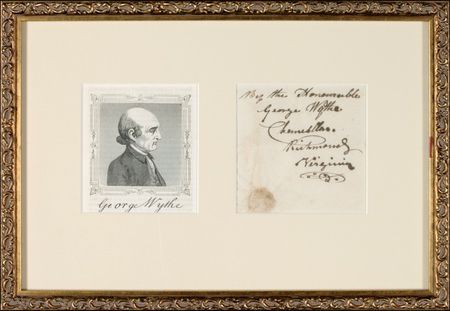 George Wythe
By the Honourable
George Wythe
Chancellor
Richmond
Virginia